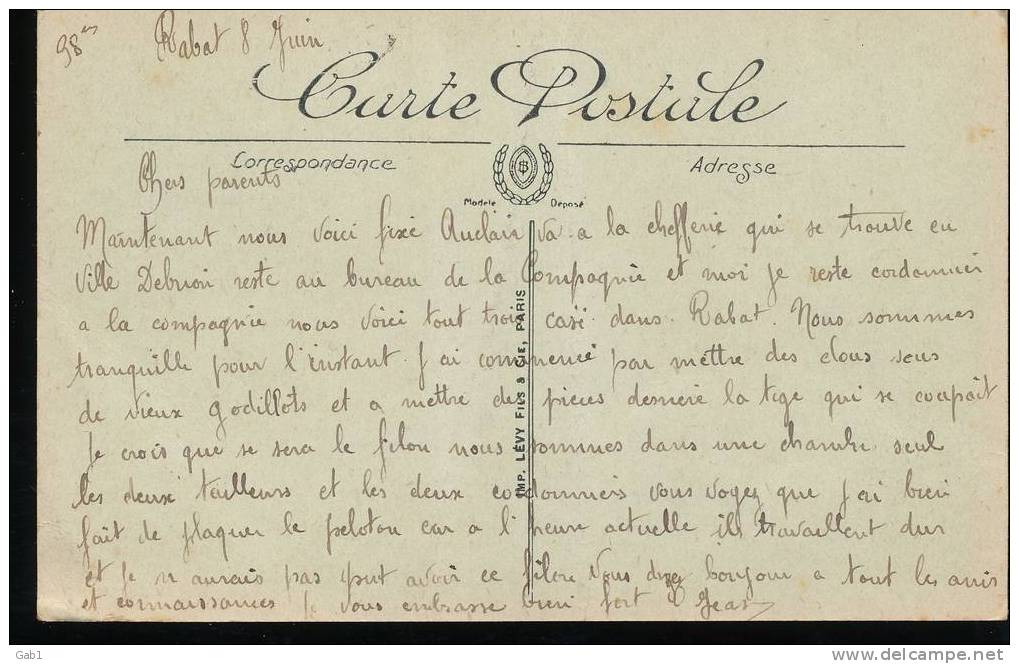 Rabat 8 Juin
Carte Postale
Correspondance
Adresse
Modèle Déposé
Chers parents
Maintenant nous voici fixé Auclair va a la chefferie qui se trouve en
ville Debrion reste au bureau de la Compagnie et moi je reste cordonnier
a la compagnie nous voici tout trois casé dans Rabat. Nous sommes
tranquille pour l'instant. J'ai commencé par mettre des clous sous
de vieux godillots et a mettre des pieces derriere la tige qui se coupait
Je crois que se sera le filon nous sommes dans une chambre seul
les deux tailleurs et les deux cordonniers vous voyez que j'ai bien
fait de plaquer le peloton car a l'heure actuelle ils travaillent dur
et je n'aurais pas put avoir ce filon Vous direz bonjour a tout les amis
et connaissances Je vous embrasse bien fort Jean
IMP. LÉVY FILS & CIE, PARIS
Gab1
delcampe.net